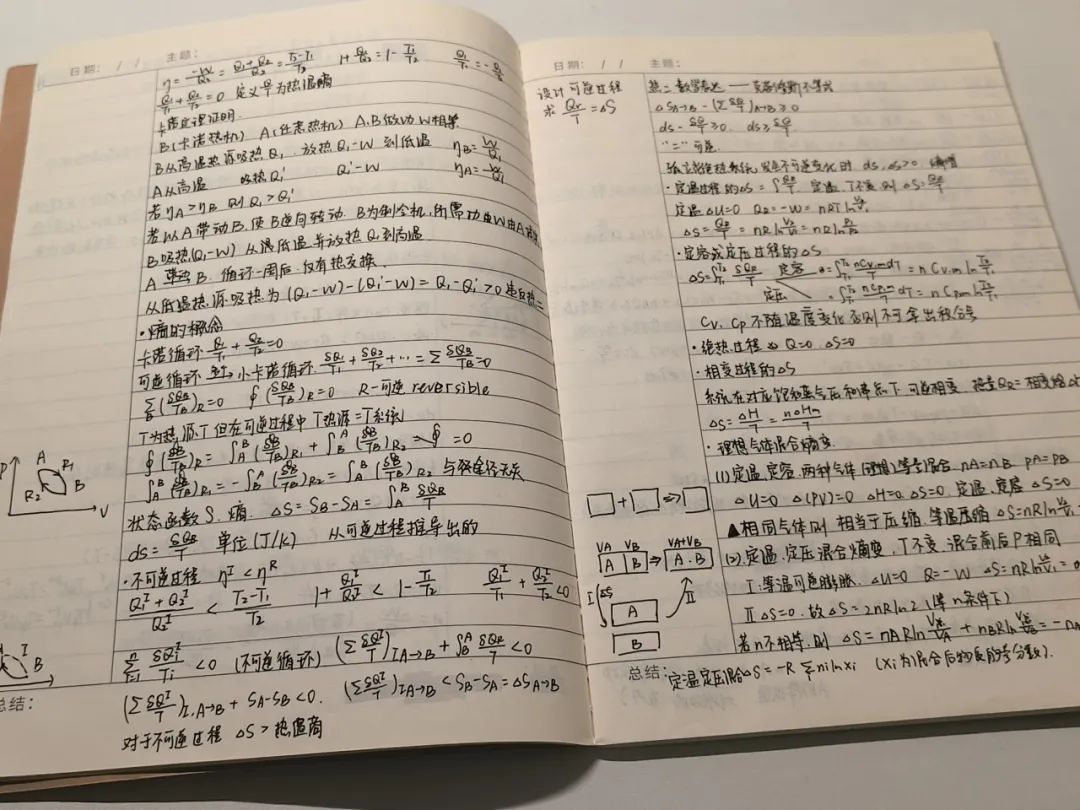 日期: / / 主题:
η=-W/Q₂=(Q₁+Q₂)/Q₂=(T₂-T₁)/T₂ 1+Q₁/Q₂=1-T₁/T₂ Q₁/T₁=-Q₂/T₂
Q₁/T₁+Q₂/T₂=0 定义Q/T为热温商
卡诺定理证明.
B(卡诺热机) A(任意热机) A,B做功W相等.
B从高温热源吸热Q₁, 放热Q₁-W 到低温 ηB=W/Q₁
A从高温 吸热Q₁' Q₁'-W ηA=W/Q₁'
若ηA>ηB 则Q₁>Q₁'
若以A带动B,使B逆向转动. B为制冷机,所需功由W由A
B吸热(Q₁-W) 从低温 并放热Q₁到高温
A 带动B. 循环一周后. 仅有热交换
从低温热源吸热为(Q₁-W)-(Q₁'-W)=Q₁-Q₁'>0 违反热二
·熵的概念
卡诺循环 Q₁/T₁+Q₂/T₂=0
可逆循环 小卡诺循环. δQ₁/T₁+δQ₂/T₂+···=∑δQB/TB=0
∑B(δQB/TB)R=0 ∮(δQB/TB)R=0 R-可逆 reversible
T为热源T 但在可逆过程中 T热源=T系统
∮(δQB/TB)R=∫A^B(δQB/TB)R₁+∫B^A(δQB/TB)R₂ =0
∫A^B(δQB/TB)R₁=-∫B^A(δQB/TB)R₂=∫A^B(δQB/TB)R₂ 与途径无关
P A R₁ R₂ B V
状态函数S. 熵. ΔS=SB-SA=∫A^B δQR/T
dS=δQR/T 单位(J/K) 从可逆过程推导出的
·不可逆过程 η^I<η^R
(Q₁^I+Q₂^I)/Q₂^I<(T₂-T₁)/T₂ 1+Q₁^I/Q₂^I<1-T₁/T₂ Q₁^I/T₁+Q₂^I/T₂<0
I B
∑δQi^I/Ti<0 (不可逆循环) (∑δQ^I/T)I A→B+∫B^A δQR/T<0
总结:
(∑δQ^I/T)I,A→B+SA-SB<0. (∑δQ^I/T)I A→B<SB-SA=ΔSA→B
对于不可逆过程 ΔS>热温商
日期: / / 主题:
设计可逆过程
求 Qr/T=ΔS
热二数学表达——克劳修斯不等式
ΔSA→B-(∑δQ/T)A→B≥0
dS-δQ/T≥0. dS≥δQ/T
"="可逆.
发生不可逆变化时 dS,ΔS>0
·定温过程的ΔS=∫δQR/T. 定温,T不变 则ΔS=QR/T
定温ΔU=0 QR=-W=nRTln
ΔS=QR/T=nRln =nRln
·定容或定压过程的ΔS
ΔS=∫T₁^T₂ δQR/T 定容 =∫T₁^T₂ nCv,mdT/T=nCv,m ln T₂/T₁
定压 =∫T₁^T₂ nCp,m/T dT=nCp,m ln T₂/T₁
Cv, Cp不随温度变化 否则不可拿出积分号
·绝热过程 Q=0. ΔS=0
·相变过程的ΔS
系统在对应饱和蒸气压和 下可逆相变. 热量QR=相变焓
ΔS=ΔH/T=nΔHm/T
·理想气体混合熵变.
(1)定温,定容,两种气体(理想)等量混合. nA=nB pA=pB
□+□⇒□
ΔU=0 Δ(PV)=0 ΔH=0. ΔS=0. 定温,定容 ΔS=0
▲相同气体则 相当于压缩. 等温压缩 ΔS=nRln
VA VB VA+VB
A B ⇒ A·B
(2)定温,定压混合熵变. T不变,混合前后P相同
I ΔS A II
I:等温可逆膨胀. ΔU=0 Q=-W ΔS=nRln
II ΔS=0. 故ΔS=2nRln2 (等n条件下)
B
若n不相等,则 ΔS=nARln +nBRln
总结: 定温定压混合ΔS=-R∑niln xi (xi为混合后物质的摩尔分数).